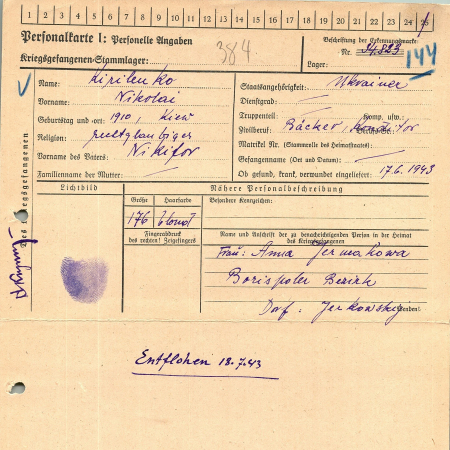 1 2 3 4 5 6 7 8 9 10 11 12 13 14 15 16 17 18 19 20 21 22 23 24 25
Personalkarte I: Personelle Angaben
Kriegsgefangenen-Stammlager:
384.
Beschriftung der Erkennungsmarke
Nr. 34823
Lager:
144
Name: Kirilenko
Vorname: Nikolai
Geburtstag und -ort: 1910, Kiew
Religion: rechtglaubiger
Vorname des Vaters: Nikifor
Familienname der Mutter:
Staatsangehörigkeit: Ukrainer
Dienstgrad:
Truppenteil: Komp. usw.:
Zivilberuf: Bäcker, Konditor
Matrikel Nr. (Stammrolle des Heimatstaates):
Gefangennahme (Ort und Datum):
Ob gesund, krank, verwundet eingeliefert: 17.6.1943
des Kriegsgefangenen
Lichtbild
Nähere Personalbeschreibung
Größe
Haarfarbe
Besondere Kennzeichen:
176
blond
Fingerabdruck
des rechten! Zeigefingers
Name und Anschrift der zu benachrichtigenden Person in der Heimat
des Kriegsgefangenen
Frau: Anna Jermakowa
Borispoler Bezirk
Dorf: Jerkowski
Entflohen 18.7.43